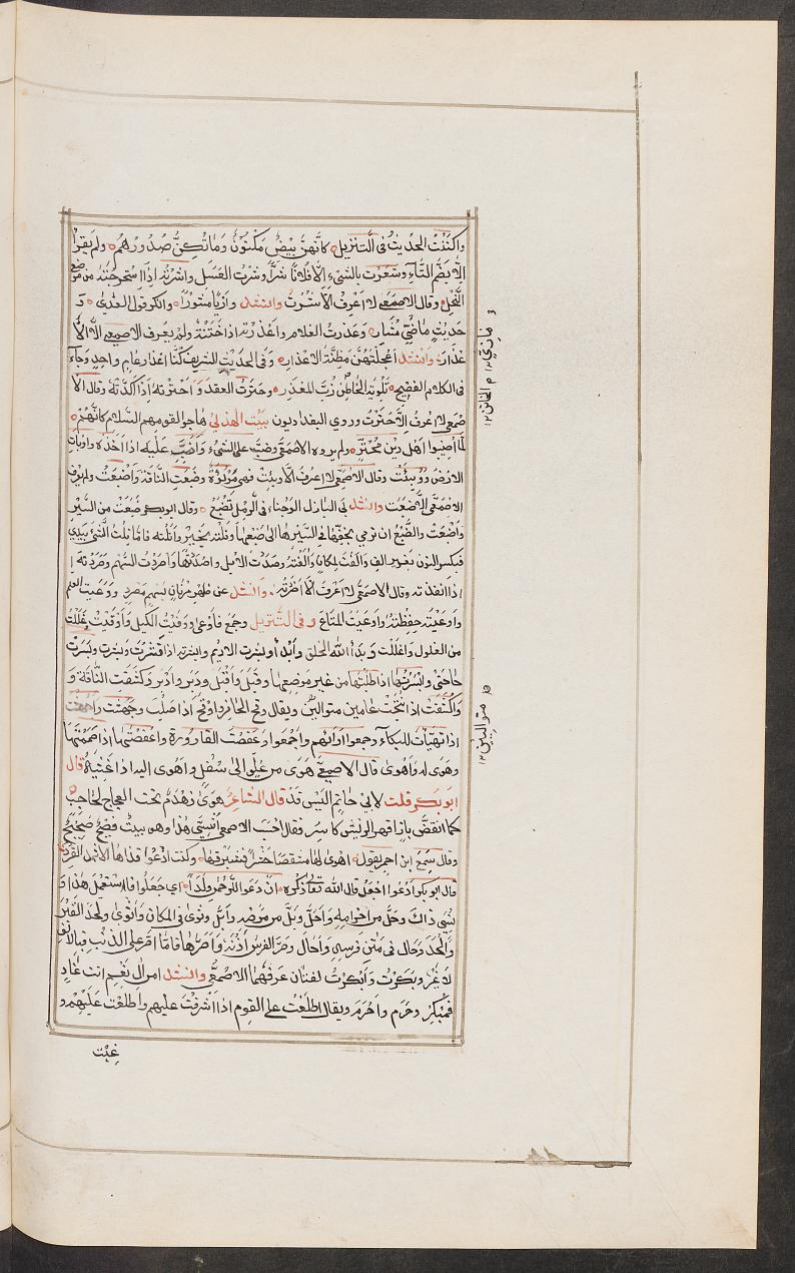 واكننت الحديث فى التنزيل كانهن بيض مكنون وما تكن صدورهم ولم يقرا
الا بضم التاء وشعرت بالشىء الا فلانا شرا وشرت العسل واشرته اذا استخرجته من موضع
النحل وقال الاصمعى لا اعرف الا شرت وانشد
حديث ماذي مشار وعذرت الغلام واعذرته اذا ختنته ولم يعرف الاصمعى الا الا
عذار وانشد مظنة الاعذار وفى الحديث الشريف كنا اعذار عام واحد وجاء
فى الكلام الفصيح زب المعذر وحترت العقد واحترته اذا اكدته وقال الا
صمعى لا اعرف الا حترت وروى البغداديون بيت الهذلي هاجوا لقومهم السلام كانهم
لما اصيبوا اهل دين محتر ولم يروه الاصمعى وضب على الشىء واضب عليه اذا اخذه واوبات
الارض ووبئت وقال الاصمعى لا اعرف الا وبئت فهى موبوءة وضبعت الناقة واضبعت ولم يعرف
الاصمعى الا ضبعت وانشد فى البازل الوجناء فى الرمل تضبع وقال ابو بكر ضبعت من السير
واضبعت والضبع ان ترمي بخفها فى السير الى ضبعها ونلته بخير وانلته فاما نلت الشىء بيدى
فبكسر النون بغير الف والفت المكان والفته وصددت الابل واصددتها وصردت السهم وصردته ا
اذا انفذته وقال الاصمعى لا اعرف الا اصردته وانشد عن ظهر مرنان بسهم مصرد ووعيت العلم
واوعيته حفظته واوعيت المتاع وفى التنزيل وجمع فاوعى ووفيت الكيل واوفيت وغللت
من الغلول واغللت وبدا الله الخلق وابدا وبشرت الاديم وابشرته اذا قشرت وبسرت
حاجتى وابسرتها اذا طلبتها من غير موضعها وقبل واقبل ودبر وادبر وكشفت الناقة و
واكشفت اذا نتجت عامين متواليين ويقال وقح الحافر واوقح اذا صلب وجهشت واجهشت
اذا تهيات للبكاء وجمعوا اراءهم واجمعوا وعفصت القارورة واعفصتها اذا صممتها
وهوى له واهوى قال الاصمعى هوى من علو الى سفل واهوى اليه اذا غشيه قال
ابو بكر قلت لابى حاتم اليس قد قال الشاعر هوى زهدم تحت العجاج لحاجب
كما انقض باز اقتم الريش كاسر فقال احسب الاصمعى انسى هذا وهو بيت فصيح صحيح
وقال سمع ابن احمر يقول اهوى لها مشقصا حشرا فشبرقها وكنت ادعو قذاها الاثمد القردا
قال ابو بكر ادعو اجعل قال الله تعالى ذكره ان دعوا للرحمن ولدا اى جعلوا فلا يستعمل هذا و
نسى ذاك وحل من احرامه واحل وبل من مرضه وابل وثوى فى المكان واثوى ولحد القبر
والحد وحال فى متن فرسه واحال وصر الفرس اذنه واصرها فاما اصر على الذنب فبالالف
لا غير وبكرت وابكرت لغتان عرفهما الاصمعى وانشد امن ال نعم انت غاد
فمبكر وحرم واحرم ويقال اطلعت على القوم اذا اشرفت عليهم واطلعت عليهم و
غبت
متواليين